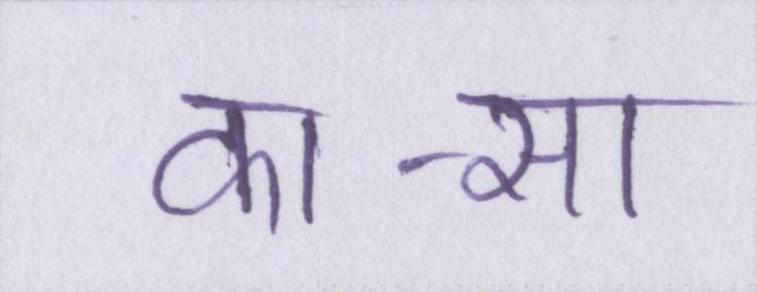 का-सा